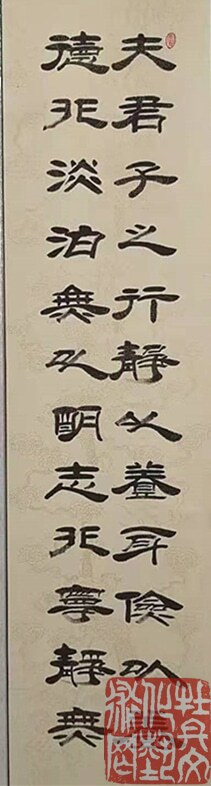 夫君子之行靜以養身儉以養
德非淡泊無以明志非寧靜無